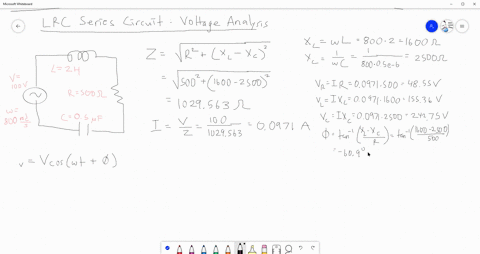 LRC Series Circuit : Voltage Analysis
L=2H
V= 100V
R=500Ω
ω= 800
C=0.5μF
v = V cos(ωt + φ)
Z = √(R² + (X_L - X_C)²)
= √(500² + (1600-2500)²)
= 1029.563 Ω
I = V/Z = 100/1029.563 = 0.0971 A
X_L = ωL = 800·2 = 1600 Ω
= 1/ωC = 1/800·0.5e-6 = 2500Ω
V_R = IR = 0.0971·500 = 48.55V
V_L = IX_L = 0.0971·1600 = 155.36 V
V_C = IX_C = 0.0971·2500 = 242.75V
φ = tan⁻¹(X_L-X_C/R) = tan⁻¹(1600-2500/500)
= -60.9°